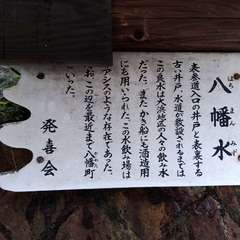 八幡水
まん みず
表参道入口の井戸と表裏する
古い井戸、水道が敷設されるまでは
この良水は大浜地域の人々の飲み水
だった。またかき船にも酒造用
にも用いられた。この水飲み場は
アシスのような存在であった。
お、この辺を最近まで八幡町
といった。
発喜会